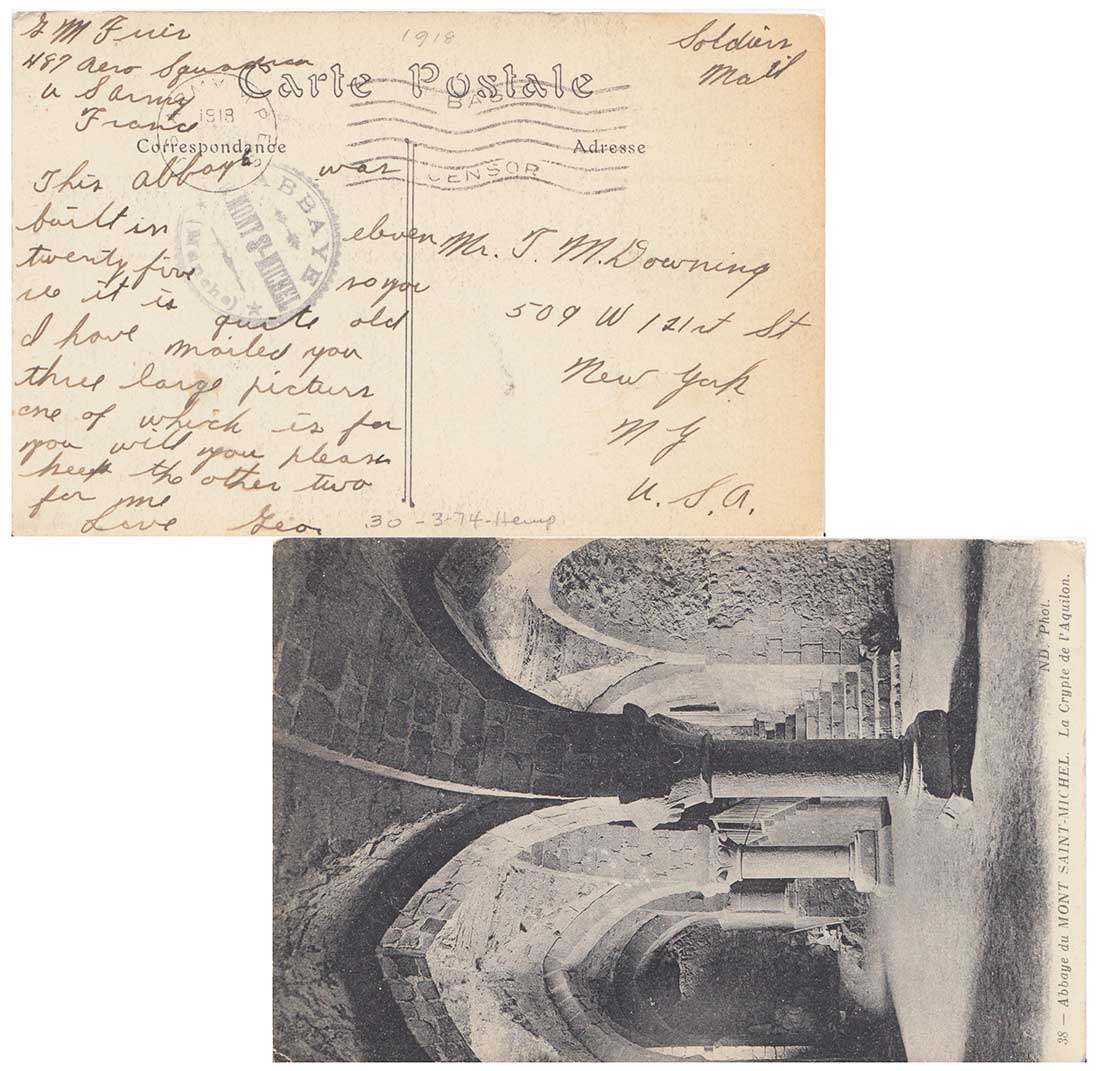 G M Frier
487 Aero Squadron
U S Army
France
1918
Soldiers
Mail
Carte Postale
1918
BASE
CENSOR
Correspondance
Adresse
ABBAYE
MONT St-MICHEL
(Manche)
This abbaye was
built in eleven
twenty five so you
see it is quite old
I have mailed you
three large picturs
one of which is for
you will you please
keep the other two
for me
Love Geo.
Mr. T. M. Downing
509 W 121st St
New York
N Y
U. S. A.
30 - 3-74-Hemp
38 — Abbaye du MONT SAINT-MICHEL. La Crypte de l'Aquilon.
ND. Phot.